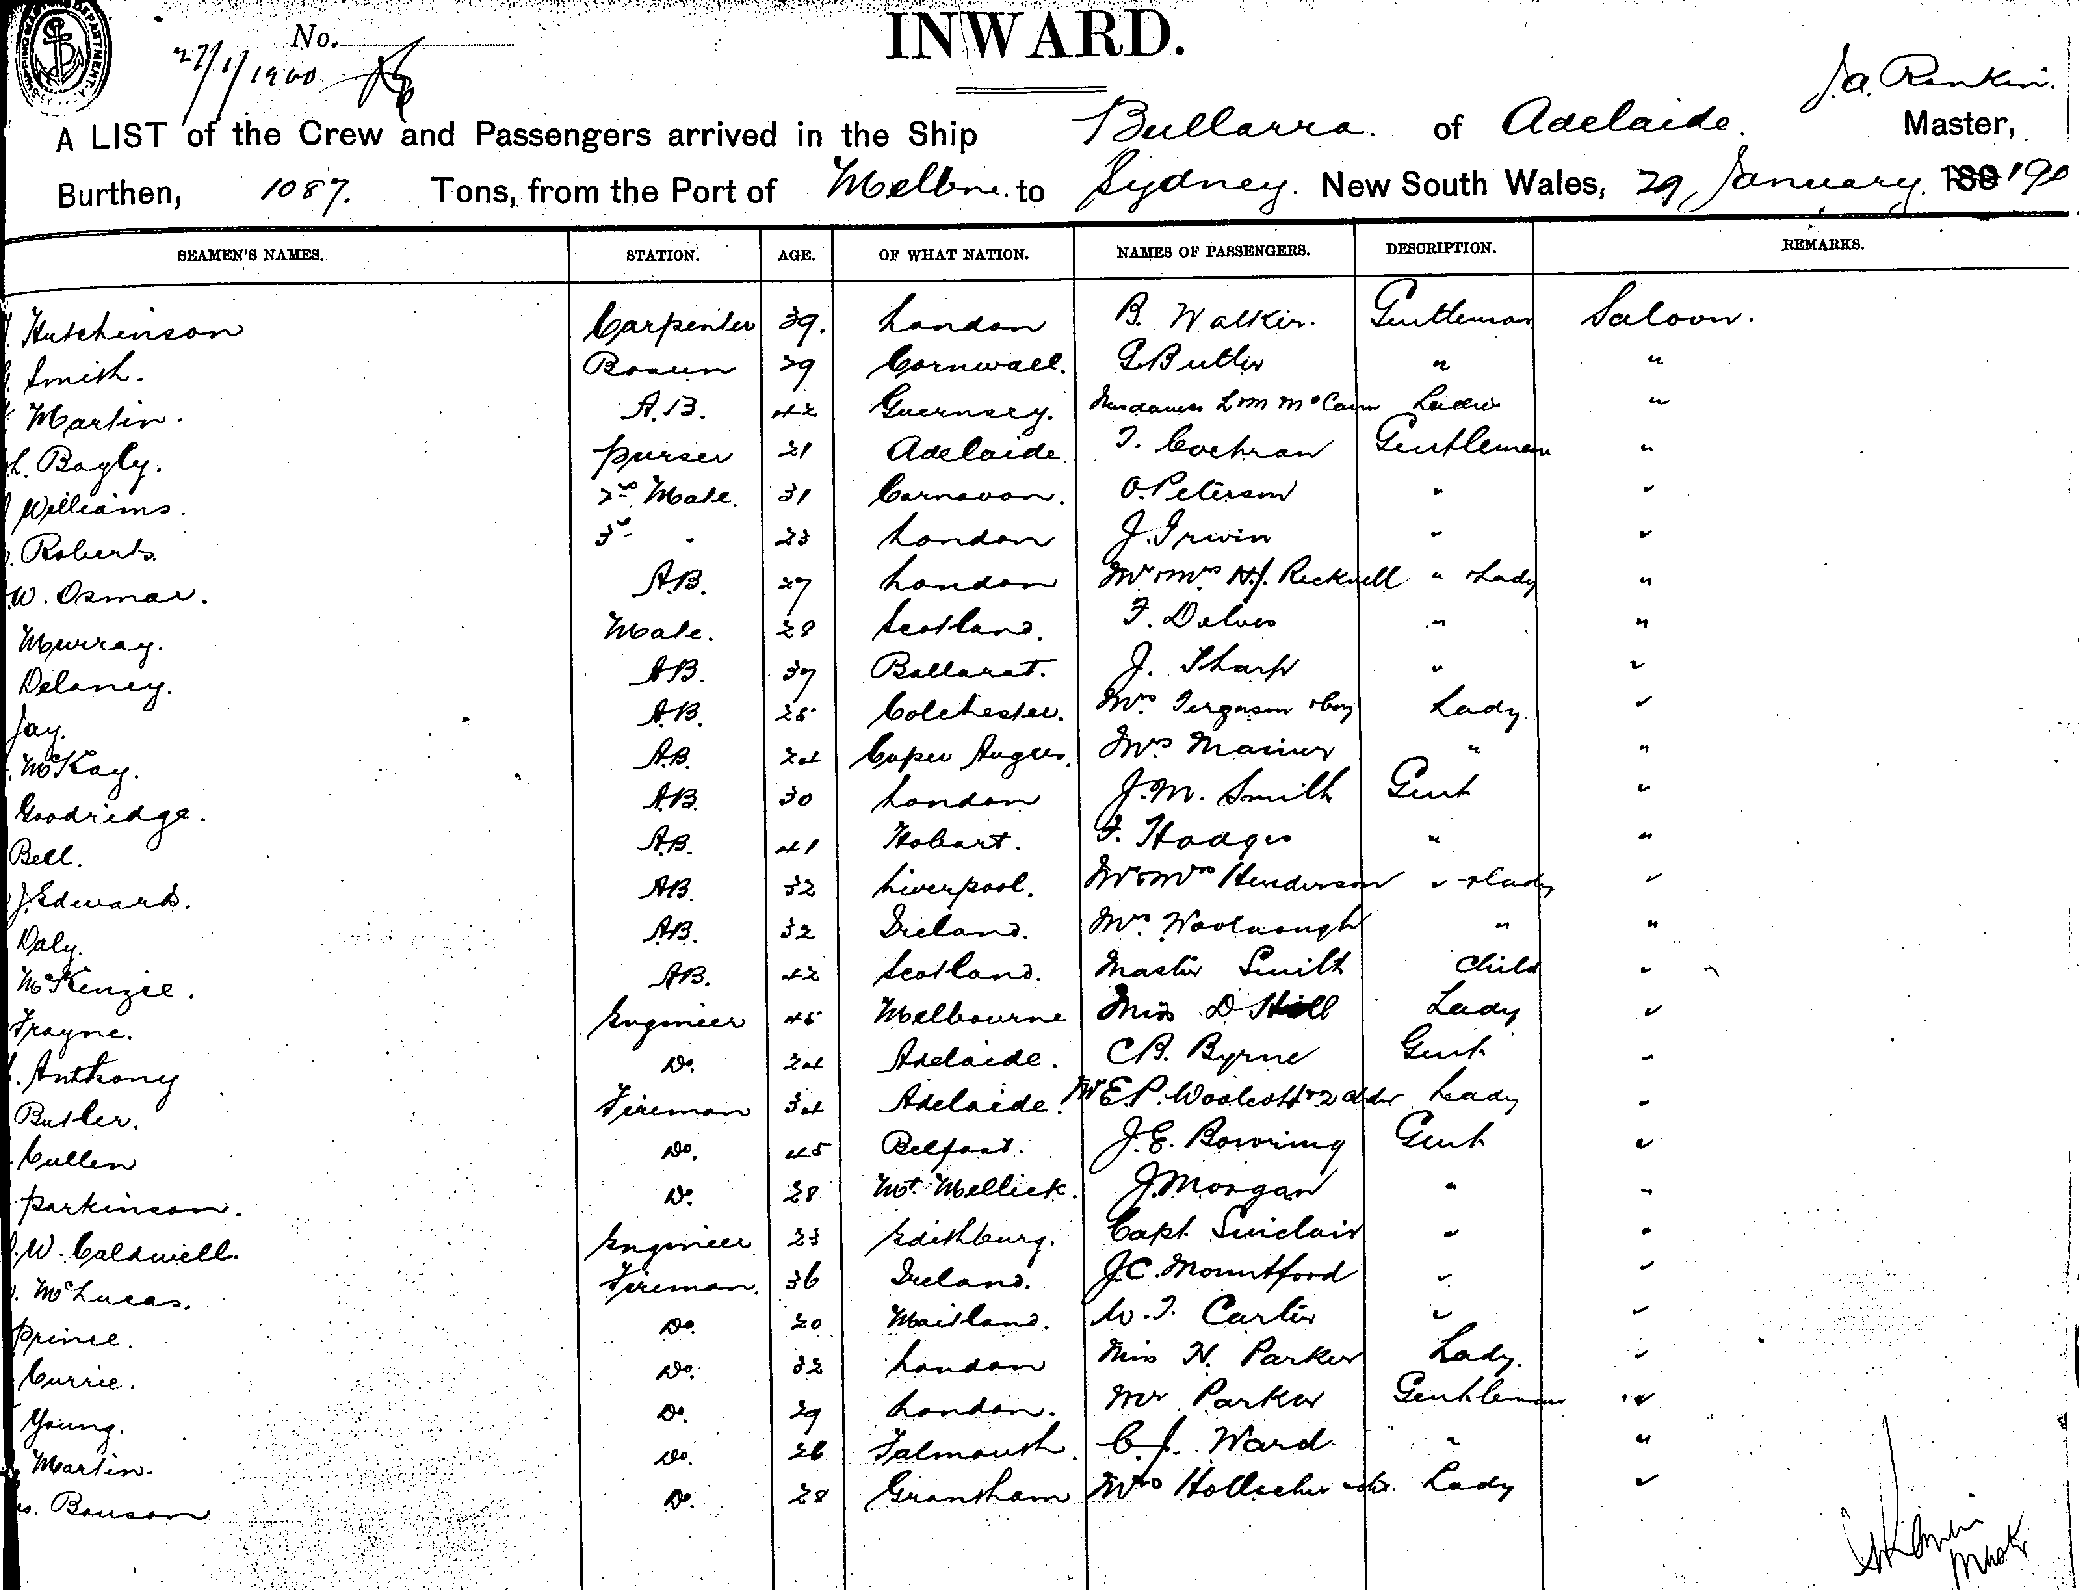 No.
27/1/1900
INWARD.
J.A. Rankin.
A LIST of the Crew and Passengers arrived in the Ship Bullarra. of Adelaide. Master,
Burthen, 1087. Tons, from the Port of Melbne. to Sydney. New South Wales, 29 January 190
SEAMEN'S NAMES. STATION. AGE. OF WHAT NATION. NAMES OF PASSENGERS. DESCRIPTION. REMARKS.
Hutchinson Carpenter 39. London B. Walker. Gentleman Saloon.
Smith. Bosun 29 Cornwall. G Butler " "
Martin. A.B. 42 Guernsey. Mesdames L & M McCann Ladies "
Bagly. Purser 21 Adelaide T. Cochran Gentlemen "
Williams. 2nd Mate. 31 Carnavon. O. Peterson " "
Roberts 3rd " 23 London J. Irwin " "
W. Osmar. A.B. 27 London Mr & Mrs H.J. Recknell " & Lady "
Murray. Mate. 28 Scotland. F. Delves " "
Delaney. AB. 37 Ballarat. J. Sharp " "
Jay. A.B. 25 Colchester. Mrs Ferguson & boy Lady. "
McKay. AB. 24 Mrs " "
Goodridge. A.B. 30 London J.M. Smith Gent "
Bell. AB. 41 Hobart. F. Hodges " "
J. Edwards. AB. 32 Liverpool. Mr & Mrs Henderson " & Lady "
Daly. AB. 32 Ireland. Mrs Woolnough " "
McKenzie. AB. 42 Scotland. Master Smith Child "
Trayne. Engineer 45 Melbourne Miss D Hill Lady "
Anthony Do. 24 Adelaide. C B. Byrne Gent "
Butler. Fireman 34 Adelaide. E.P. Woolcott & 2 Lady "
Cullen Do. 45 Belfast. J.E. Bowring Gent "
Parkinson. Do. 28 Mt. Mellick. J. Morgan " "
W. Caldwell. Engineer 23 Edithburg. Capt. Sinclair " "
McLucas. Fireman. 36 Ireland. J.C. Mountford " "
Prince. Do. 20 Maitland. W. T. Carter " "
Currie. Do. 32 London Miss H. Parker Lady. "
Young. Do. 29 London. Mr Parker Gentleman "
Martin. Do. 26 Falmouth. C. J. Ward " "
Bouson Do. 28 Grantham Mrs Lady "
Master